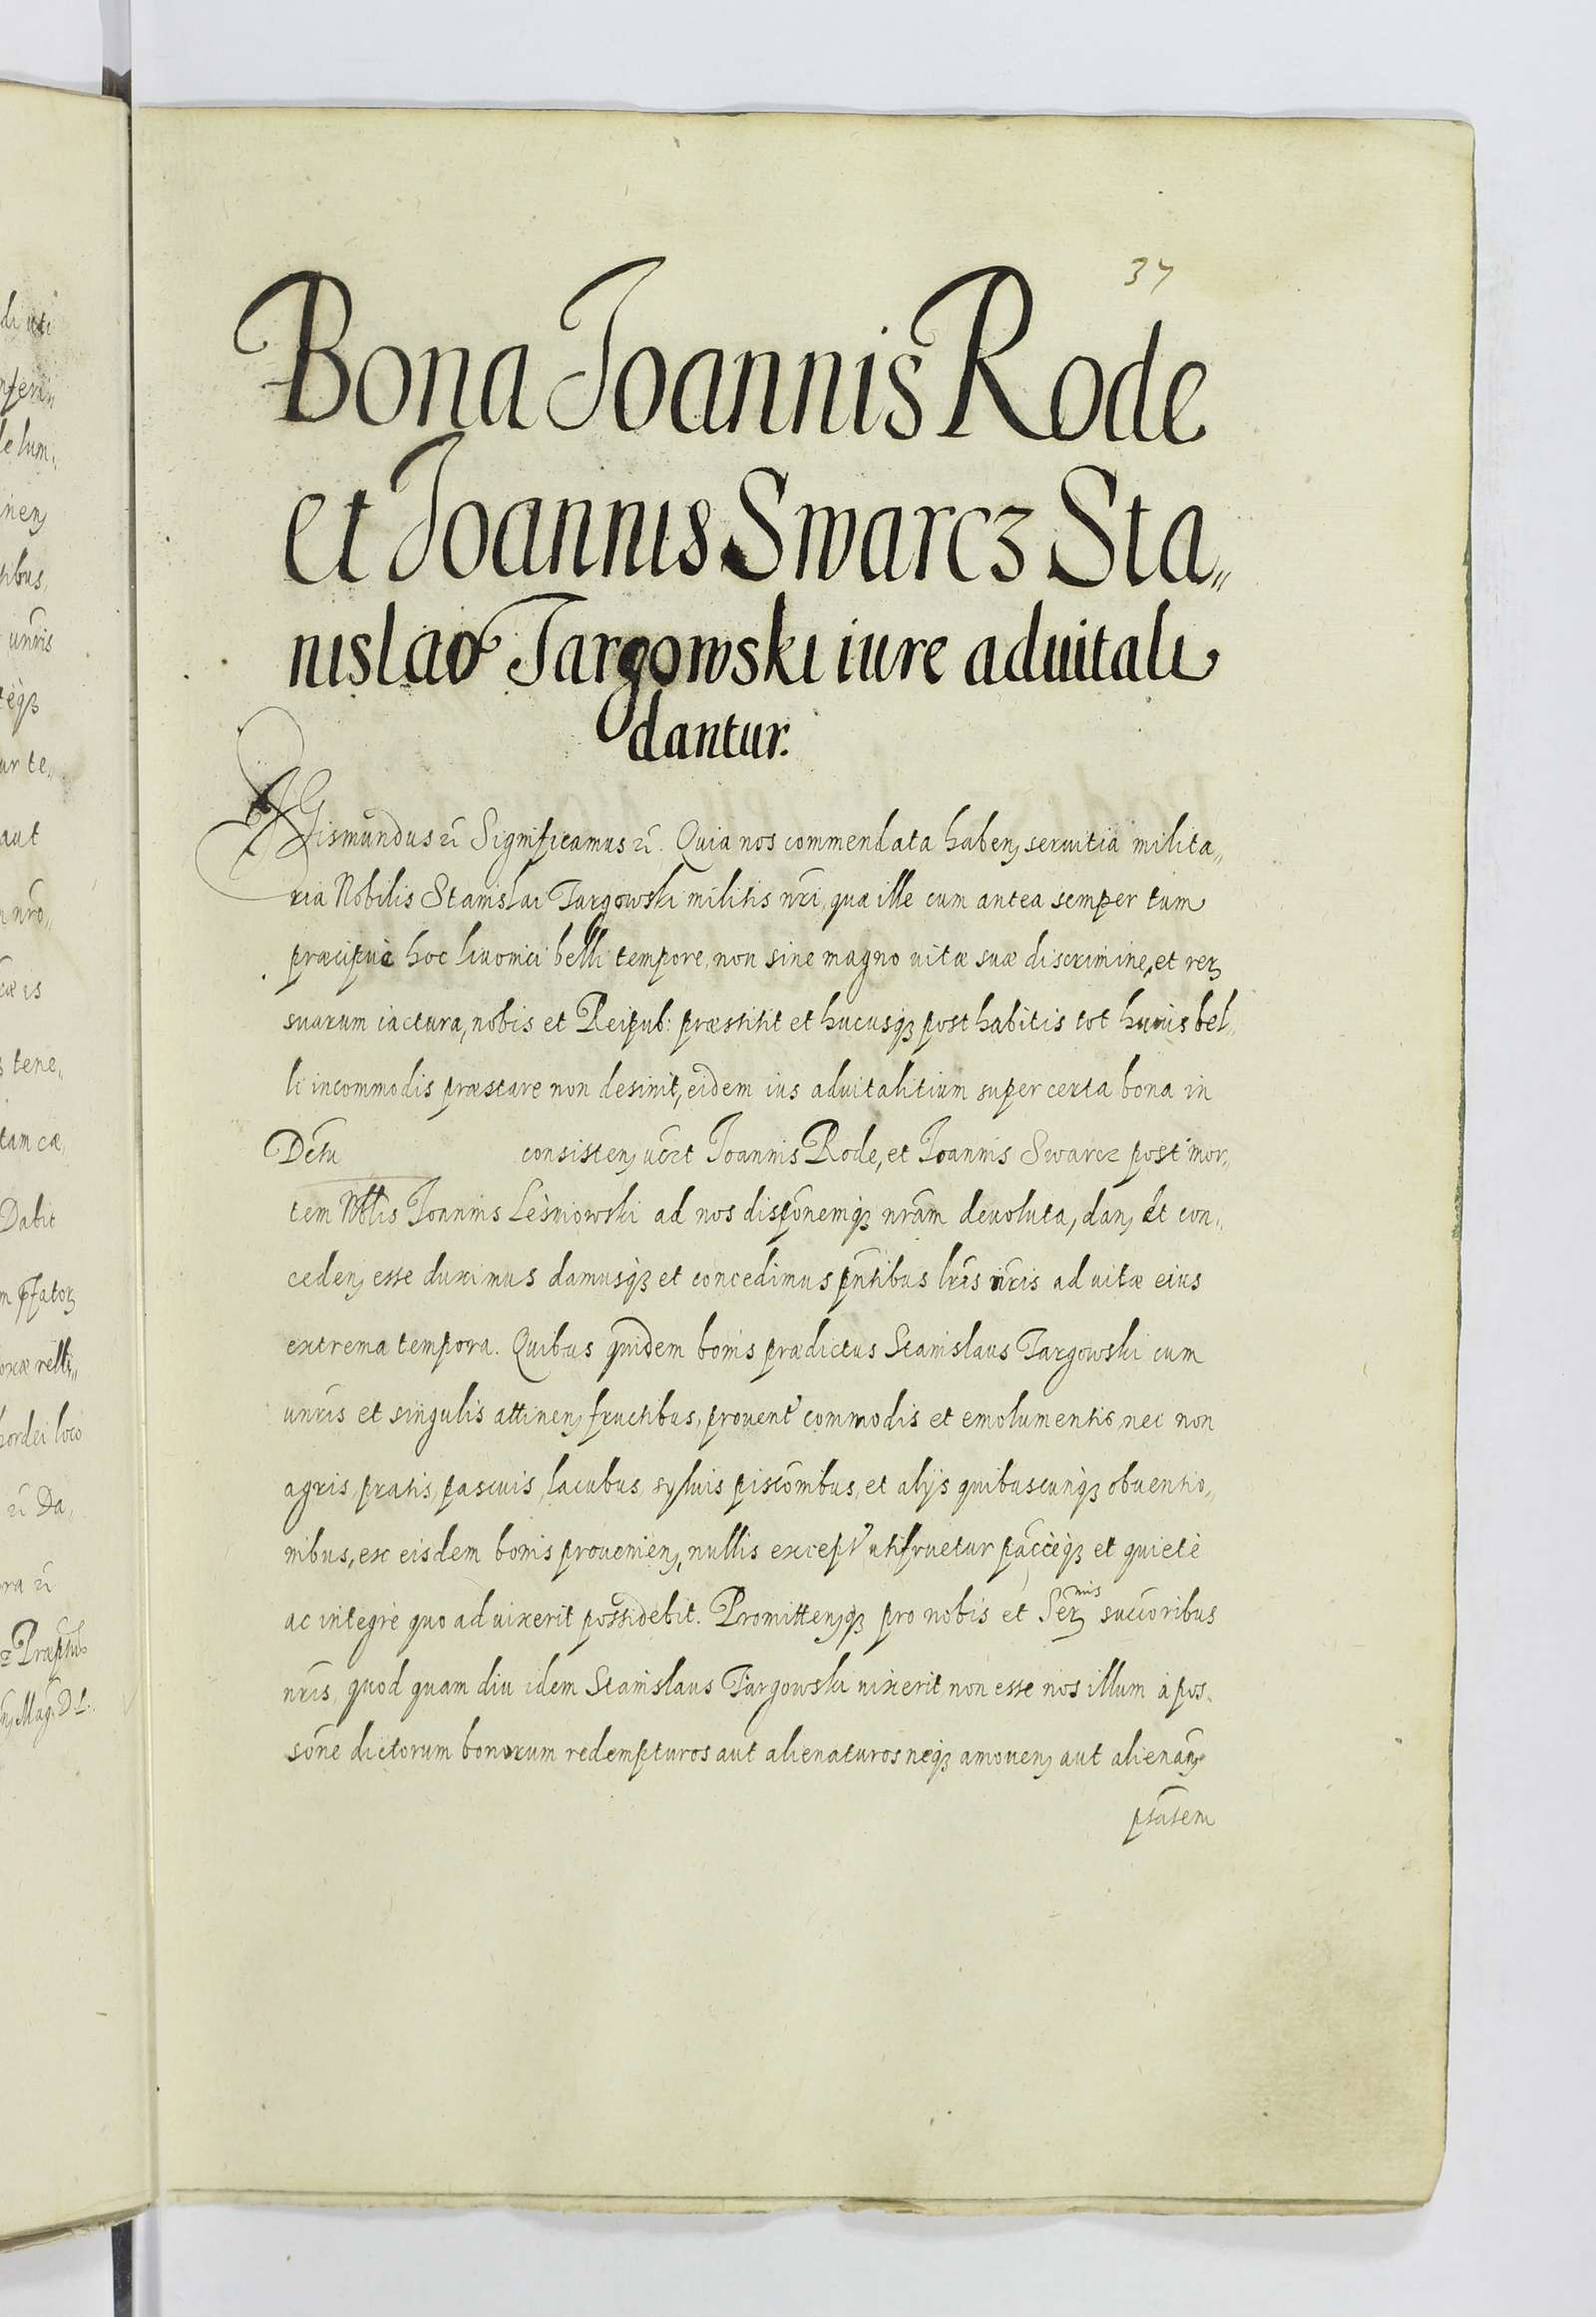 37
Bona Joannis Rode
et Joannis Swarcz Sta„
nislao Targowski iure aduitali
dantur.
SGismundus &c̃ Significamus &c̃. Quia nos commendata haben, seruitia milita„
ria Nobilis Stanislai Targowski militis nr̃i, qua ille cum antea semper tum
præcipue hoc liuonici belli tempore, non sine magno uitæ suæ discrimine, et rerꝫ
suarum iactura, nobis et Reipub: præstitit et hucusqꝫ post habitis tot huius bel„
li incommodis præstare non desinit, eidem ius aduitalitium super certa bona in
Dc̃tu consisten, uc̃zt Joannis Rode, et Joannis Swarcz post mor„
tem Nobl̃is Joannis Leśniowski ad nos disp̃onemqꝫ nr̃am deuoluta, dan, et con„
ceden, esse duximus damusqꝫ et concedimus p̃ntibus lr̃is nr̃is ad uitæ eius
extrema tempora. Quibus quidem bonis prædictus Stanislaus Targowski cum
unr̃is et singulis attinen, fructibus, prouent' commodis et emolumentis, nec non
agris, pratis, pascuis, lacubus, syluis pisc̃onibus, et alijs quibuscunqꝫ obuentio„
nibus, ex eisdem bonis prouenien, nullis except' utifruetur pac̃ceqꝫ et quietè
ac integrè quo ad uixerit possidebit. Promitten,qꝫ pro nobis et Ser̃ꝫ nis succ̃oribus
nr̃is, quod quam diu idem Stanislaus Targowski uixerit, non esse nos illum à pos„
sõne dictorum bonorum redempturos aut alienaturos neqꝫ amouen, aut alienañ,
ptãtem